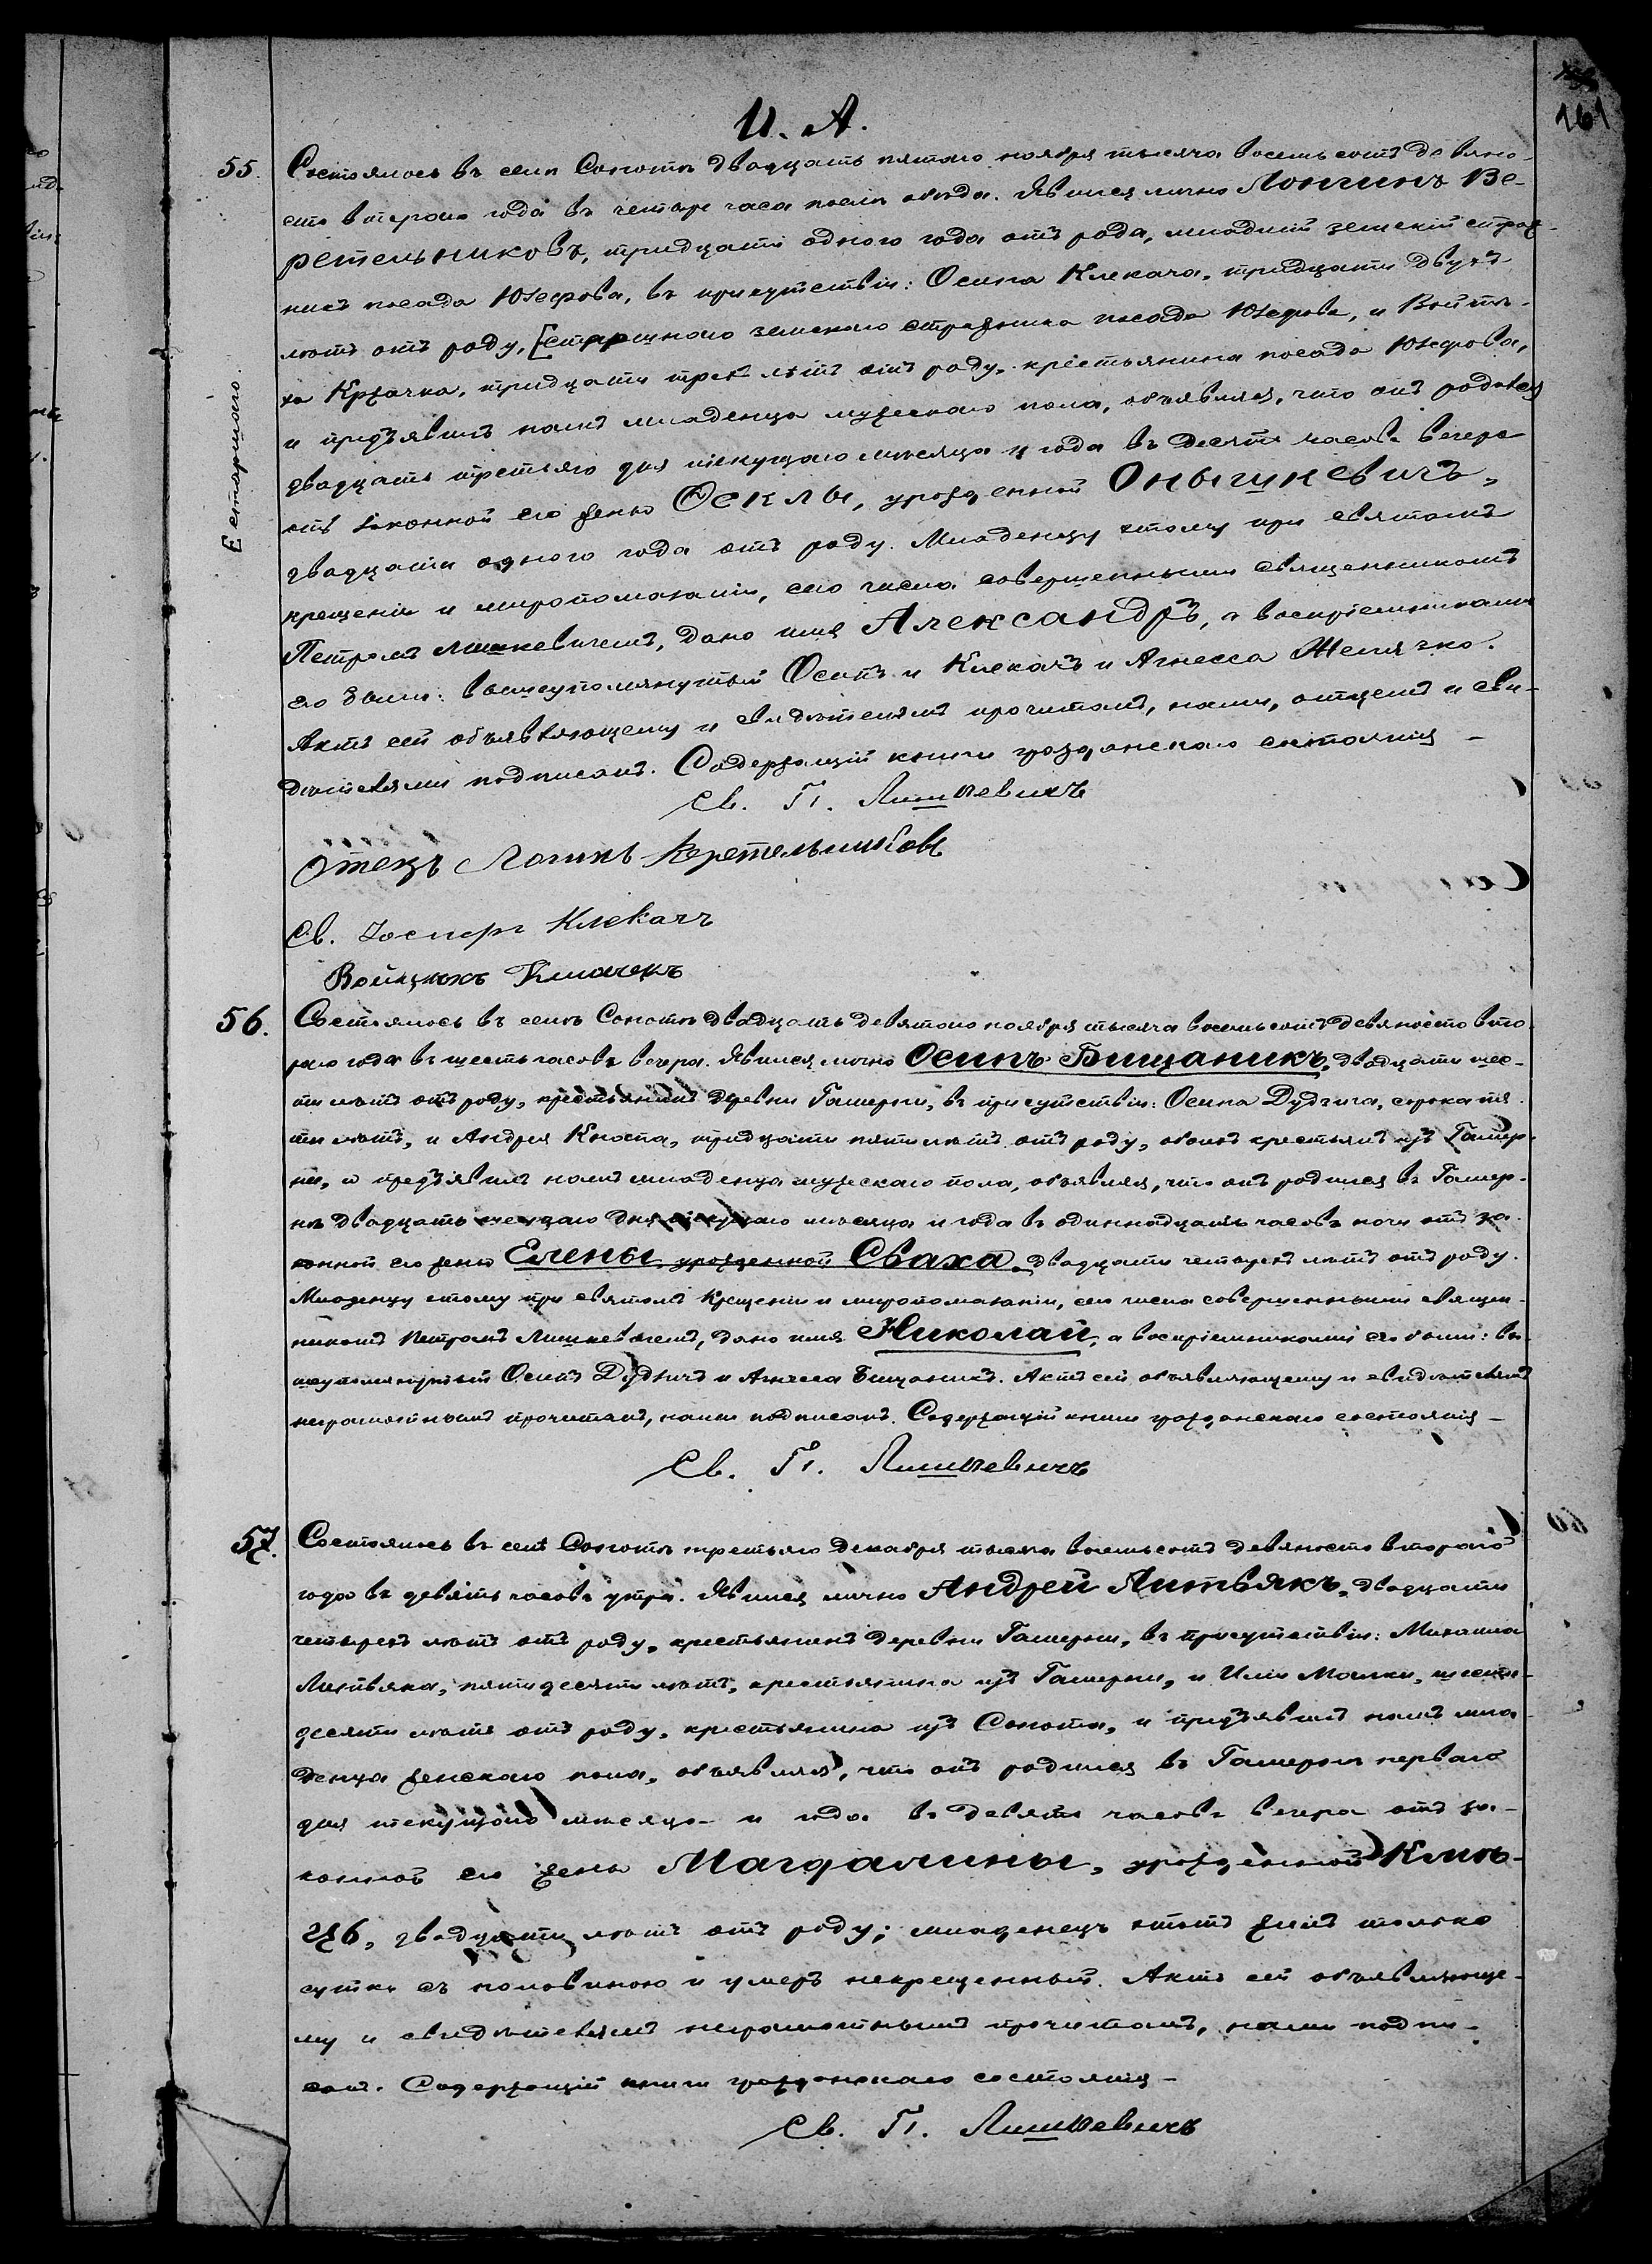 161
И. А.
55. Состоялось въ селѣ Сокотѣ двадцать пятаго ноября тысяча восемьсотъ девяно-
сто второго года въ четыре часа послѣ обѣда. Явился лично Лонгинъ Ве-
ретельниковъ, тридцати одного года отъ рода, младшій земскій страж-
никъ посада Юзефова, въ присутствіи: Осипа Клекача, тридцати двухъ
лѣтъ отъ роду, старшаго земскаго стражника посада Юзефова, и Войтѣ-
ха тридцати трехъ лѣтъ отъ роду, крестьянина посада Юзефова,
и предъявилъ намъ младенца мужескаго пола, объявляя, что онъ родился
двадцать третьяго дня текущаго мѣсяца и года въ десять часовъ вечера
отъ законной его жены Ѳеклы, урожденной Онышкевичъ,
двадцати одного года отъ роду. Младенцу этому при святомъ
крещеніи и миропомазаніи, сего числа совершенными священникомъ
Петромъ Лишкевичемъ, дано имя Александръ, а воспріемниками
его были: вышеупомянутый Осипъ и Клекачъ и Агнесса
Актъ сей объявляющему и свидѣтелямъ прочитанъ, нами, отцемъ и сви-
дѣтелями подписанъ. Содержащій книги гражданскаго состоянія –
Св. П. Лишкевичъ
Отецъ Логинъ Веретельниковъ
Св. Іосифъ Клекачъ
Войцѣхъ
56. Состоялось въ селѣ Сокотѣ двадцать девятого ноября тысяча восемьсотъ девяносто вто-
рого года въ шесть часовъ вечера. Явился лично Осипъ Бищаникъ, двадцати шес-
ти лѣтъ отъ роду, крестьянинъ деревни Гамерни, въ присутствіи: Осипа Дудзича, сорока пя-
ти лѣтъ, и Андрея тридцати пяти лѣтъ отъ роду, обоихъ крестьянъ изъ Гамер-
ни, и предъявилъ намъ младенца мужескаго пола, объявляя, что онъ родился въ Гамер-
нѣ двадцать дня текущаго мѣсяца и года въ одиннадцать часовъ ночи отъ за-
конной его жены Елены, урожденной Сваха, двадцати четырехъ лѣтъ отъ роду.
Младенцу этому при святомъ крещеніи и миропомазаніи, сего числа совершенными священ-
никомъ Петромъ Лишкевичемъ, дано имя Николай, а воспріемниками его были: вы-
шеупомянутый Осипъ Дудзичъ и Бищаникъ. Актъ сей объявляющему и свидѣтелямъ
неграмотнымъ прочитанъ, нами подписанъ. Содержащій книги гражданскаго состоянія –
Св. П. Лишкевичъ
57. Состоялось въ селѣ Сокотѣ третьяго декабря тысяча восемьсотъ девяносто второго
года въ девять часовъ утра. Явился лично Андрей Литвякъ, двадцати
четырехъ лѣтъ отъ роду, крестьянинъ деревни Гамерни, въ присутствіи: Михаила
Литвяка, пятидесяти лѣтъ, крестьянина изъ Гамерни, и Ильи Малки, шести-
десяти лѣтъ отъ роду, крестьянина изъ Сокота, и предъявилъ намъ мла-
денца женскаго пола, объявляя, что онъ родился въ Гамернѣ перваго
дня текущаго мѣсяца и года въ девять часовъ вечера отъ за-
конной его жены Магдалины, урожденной
двадцати лѣтъ отъ роду; младенецъ этотъ жилъ только
сутки съ половиною и умеръ некрещенный. Актъ сей объявляюще-
му и свидѣтелямъ неграмотнымъ прочитанъ, нами подпи-
санъ. Содержащій книги гражданскаго состоянія –
Св. П. Лишкевичъ